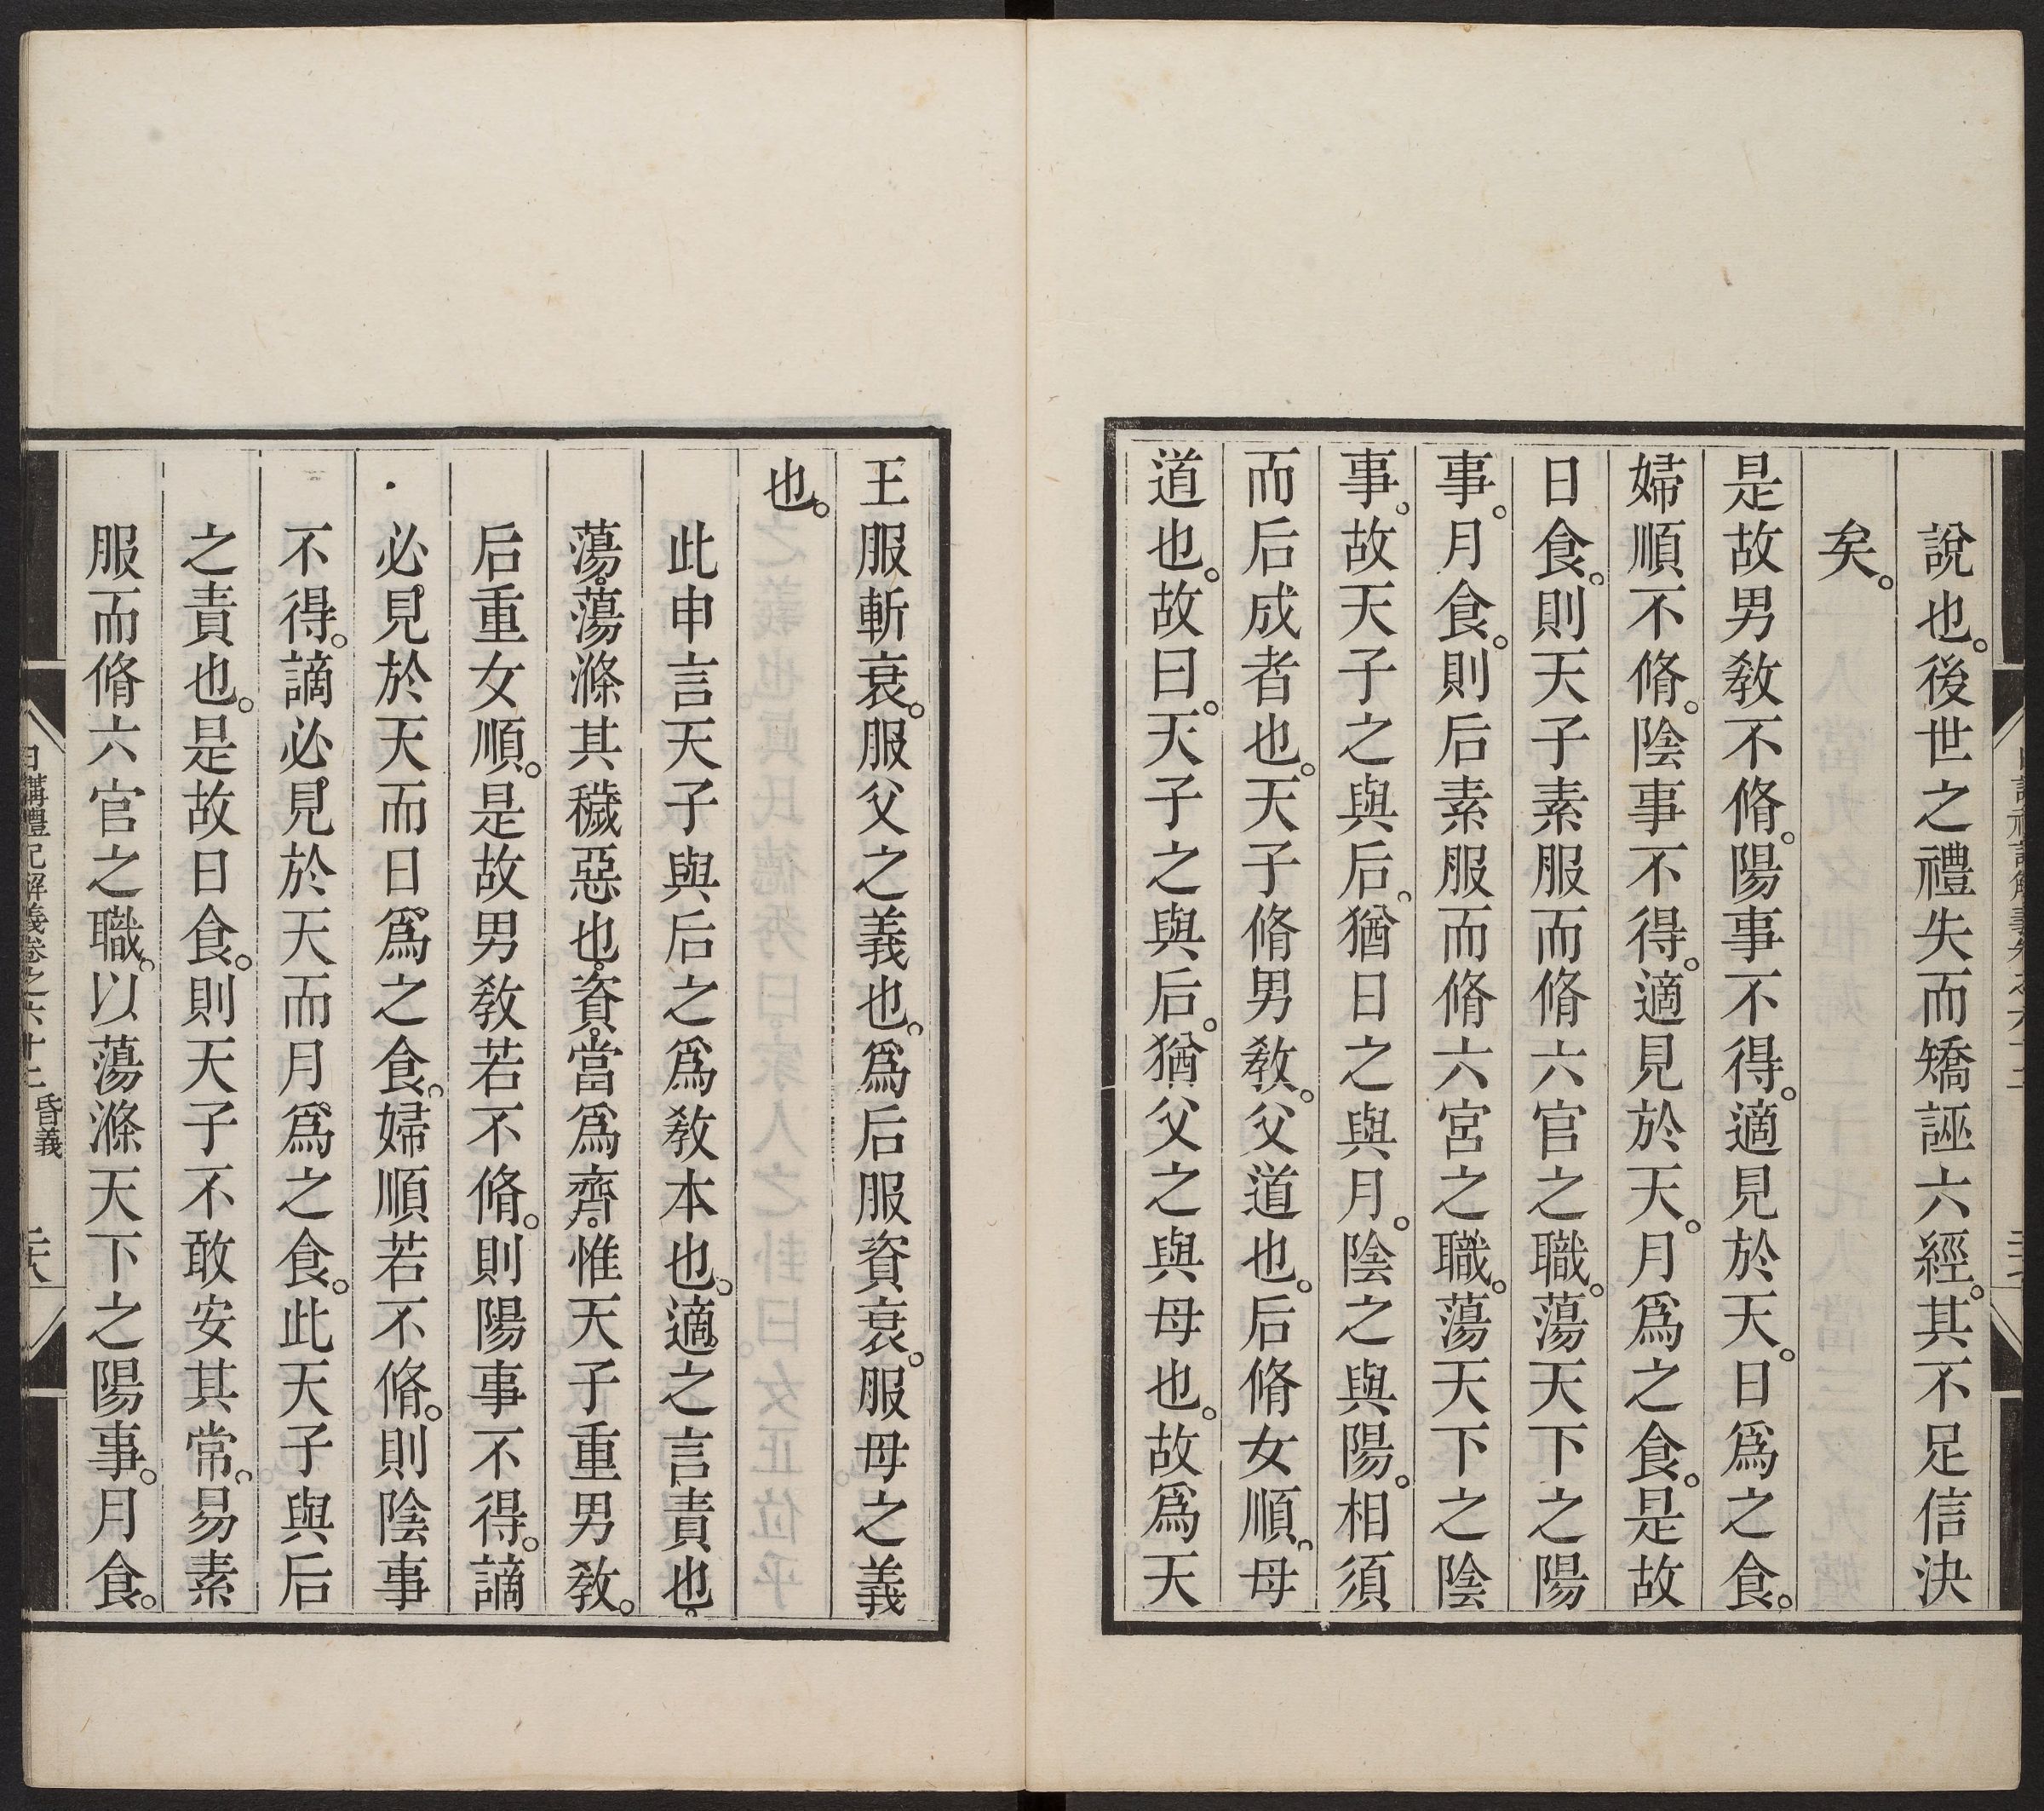 說也。後世之禮失而矯誣六經。其不足信決
矣。
是故男敎不脩。陽事不得。適見於天。日爲之食。
婦順不脩。陰事不得。適見於天。月爲之食。是故
日食。則天子素服而脩六官之職。蕩天下之陽
事。月食。則后素服而脩六宮之職。蕩天下之陰
事。故天子之與后。猶日之與月。陰之與陽。相須
而后成者也。天子脩男敎。父道也。后脩女順。母
道也。故曰。天子之與后。猶父之與母也。故爲天
王服斬衰。服父之義也。爲后服資衰。服母之義
也。
此申言天子與后之爲敎本也。適之言責也。
蕩。蕩滌其穢惡也。資。當爲齊。惟天子重男敎。
后重女順。是故男敎若不脩。則陽事不得。謫
必見於天而日爲之食。婦順若不脩。則陰事
不得。謫必見於天而月爲之食。此天子與后
之責也。是故日食。則天子不敢安其常。易素
服而脩六官之職。以蕩滌天下之陽事。月食。
日講禮記解義卷之六十二 昏義